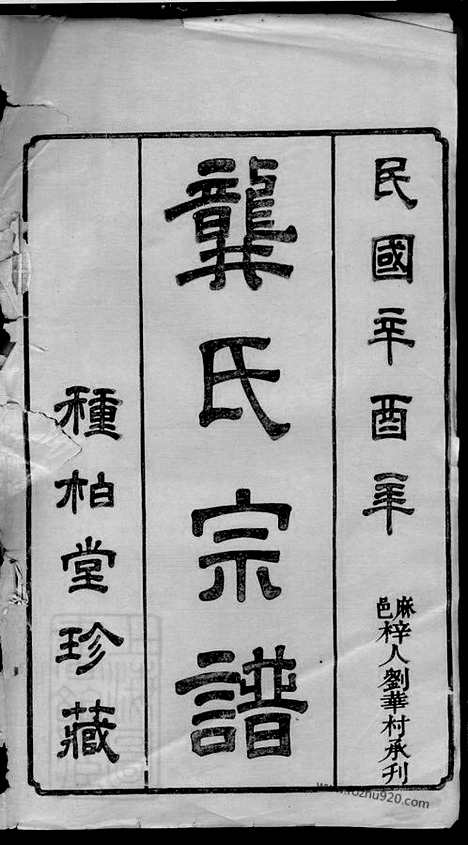 民國辛酉年
麻邑梓人劉華村承刊
龔氏宗譜
種柏堂珍藏